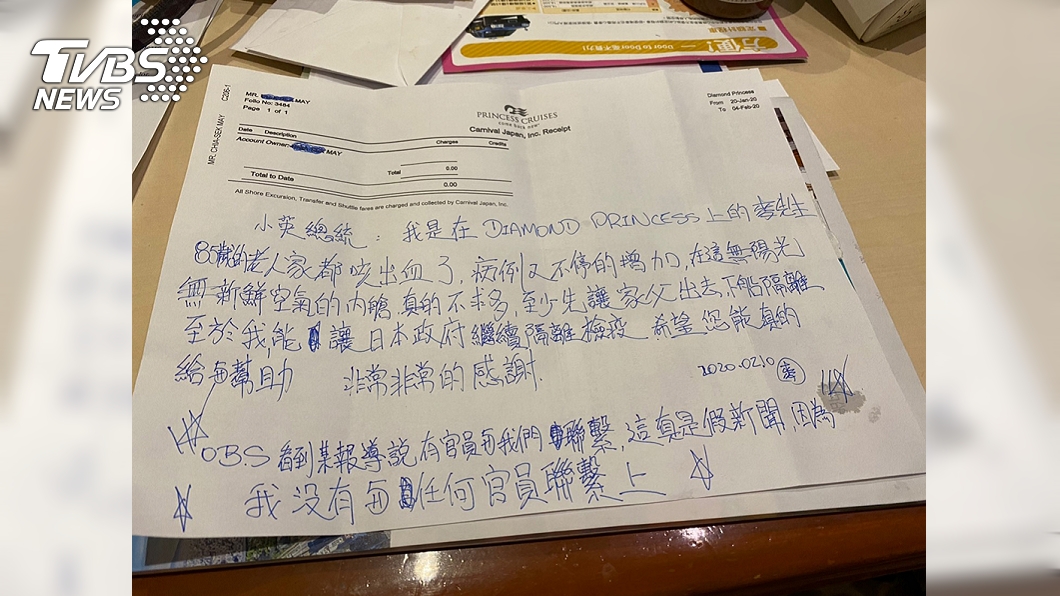 TVBS
NEWS
方便! 一 Door to Door
C236-1
MR. CHIA-SEK MAY
MR. MAY
Folio No: 3484
Page 1 of 1
PRINCESS CRUISES
come back new
Carnival Japan, Inc. Receipt
Diamond Princess
From 20-Jan-20
To 04-Feb-20
Date Description Charges Credits
Account Owner- MAY
Total 0.00
Total to Date 0.00
All Shore Excursion, Transfer and Shuttle fares are charged and collected by Carnival Japan, Inc.
小英總統: 我是在 DIAMOND PRINCESS 上的麥先生
85歲的老人家都咳出血了,病例又不停的增加,在這無陽光
無新鮮空氣的內艙,真的不求多,至少先讓家父出去,下船隔離
至於我,能讓日本政府繼續隔離檢疫 希望您能真的
給與幫助 非常非常的感謝.
2020.02.10 麥
OB.S 看到某報導說有官員與我們聯繫,這真是假新聞,因為
我没有與任何官員聯繫上